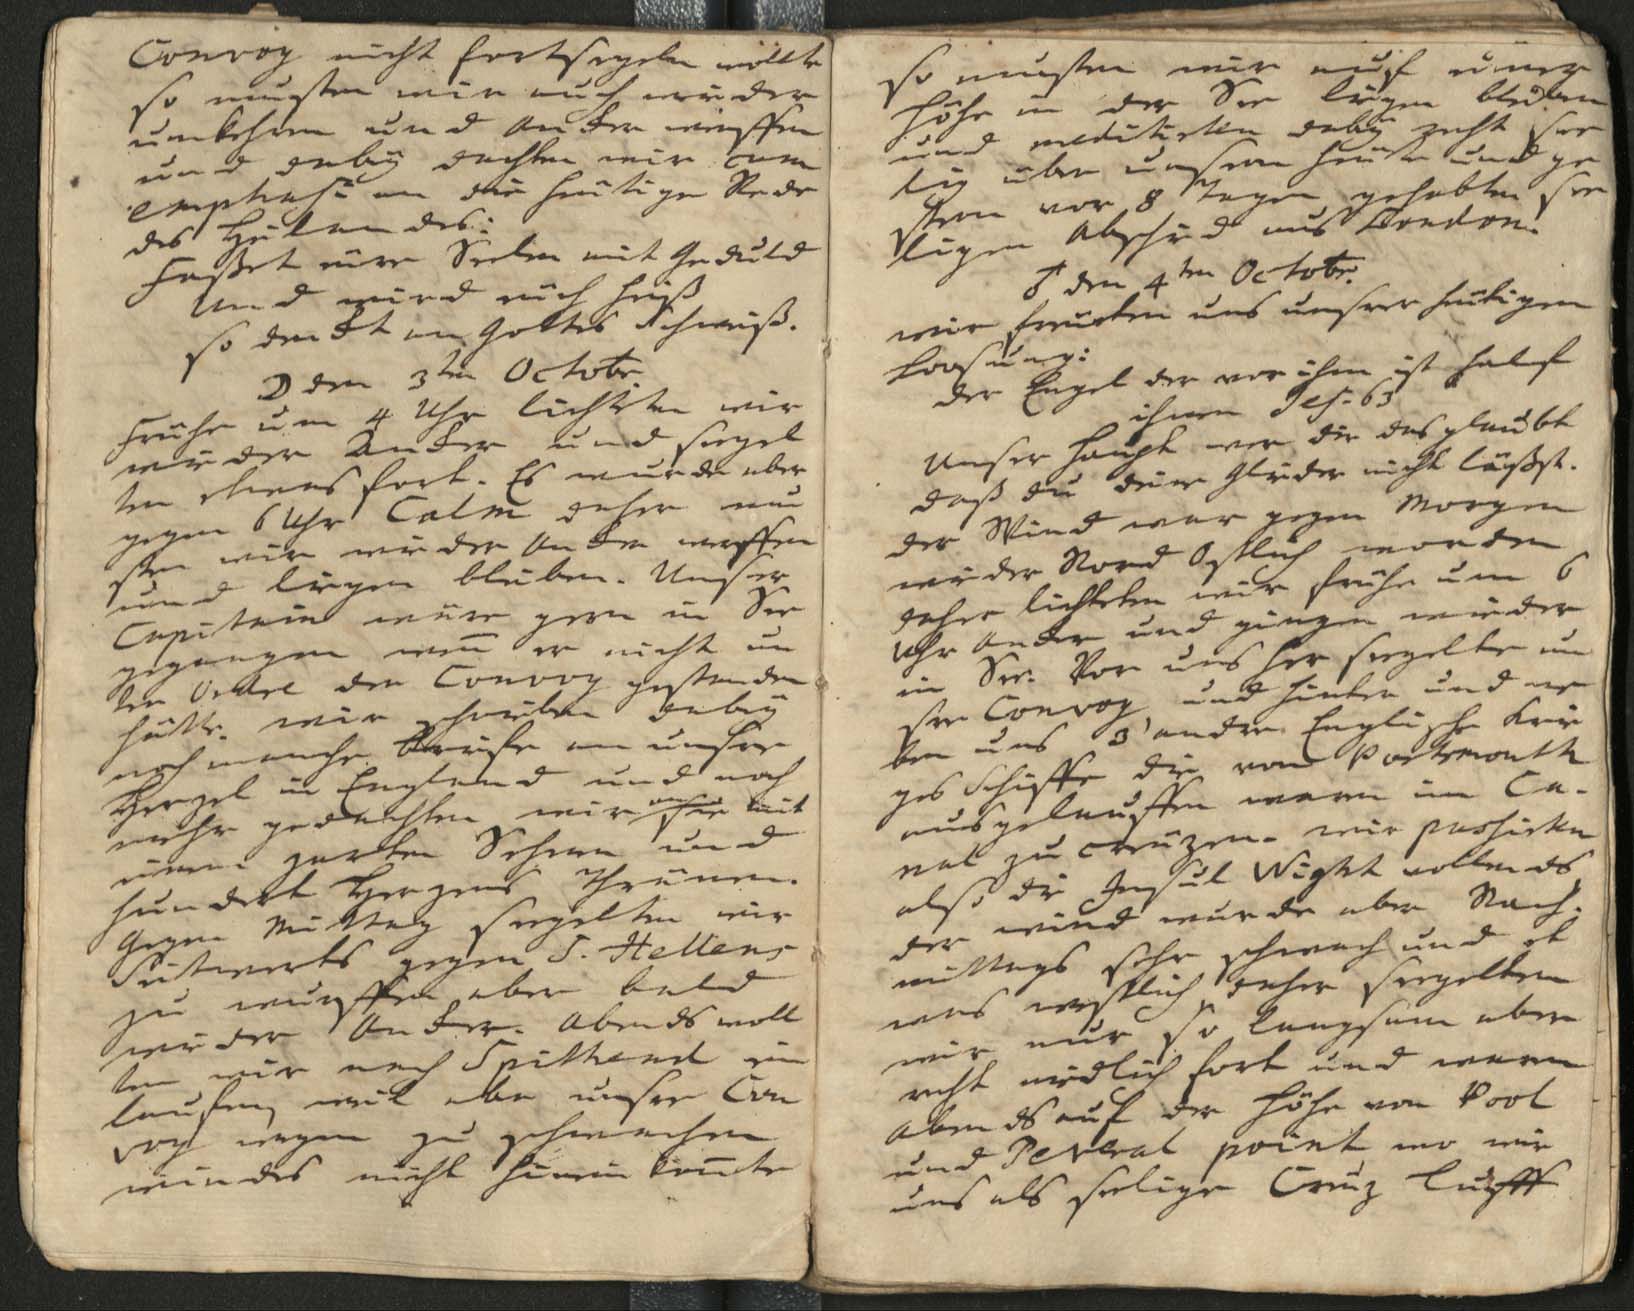 Convoy nicht fortseegeln wollte
so musten wir auch wieder
umkehren und Ancker werffen
und dabeÿ dachten wir cum
emphasi an die heutige Rede
des Heÿlandes:
Faßet eure Seelen mit Geduld
Und wird euch heiß
so denckt an Gottes Schweiß.
☽ den 3ten Octobr.
Frühe um 4 Uhr lichteten wir
wieder Ancker und seegel
ten etwas fort. Es wurde aber
gegen 6 Uhr Calm daher mu
sten wir wieder Ancker werffen
und liegen bleiben. Unser
Capitain wäre gern in See
gegangen weñ er nicht un
ter Order der Convoy gestanden
hätte. wir schrieben dabeÿ
noch manche Briefe an unsere
Herzel in England und noch
mehr gedachten wir an sie mit
einem zarten Sehnen und
hundert Herzens Thränen.
Gegen Mittag seegelten wir
Ostwerts gegen S. Hellens
zu wurffen aber bald
wieder Ancker. Abends woll
ten wir nach Spithead ein
lauffen, weil aber unsre Con
voy wegen zu schwachen
windes nicht hinein koñte
so musten wir auf einer
Höhe in der See liegen bleiben
und meditirten dabeÿ recht see
lig über unsern heute und ge
stern vor 8 Tagen gehabten see
ligen Abschied aus London.
♂ den 4ten Octobr.
wir freuten uns unsrer heutigen
Loosung:
der Engel der vor ihm ist half
ihnen Jes. 63
Unser Haupt wer dir das glaubt
daß du deine Glieder nicht läßst.
der Wind war gegen Morgen
wieder Nord Ostlich worden
daher lichteten wir frühe um 6
Uhr Ancker und giengen wieder
in See. Vor uns her seegelte un
sre Convoy, und hinter und ne
ben uns 3 andre Englische Krie
ges Schiffe die von Portsmouth
ausgelauffen waren im Ca-
nal zu creuzen. wir passirten
also die Insul Wight vollends
der wind wurde aber Nach-
mittags sehr schwach und et
was westlich, daher seegelten
wir nur so langsam aber
recht niedlich fort und waren
Abends auf der Höhe von Pool
und Peveral point wo wir
uns als seelige Creuz Lufft